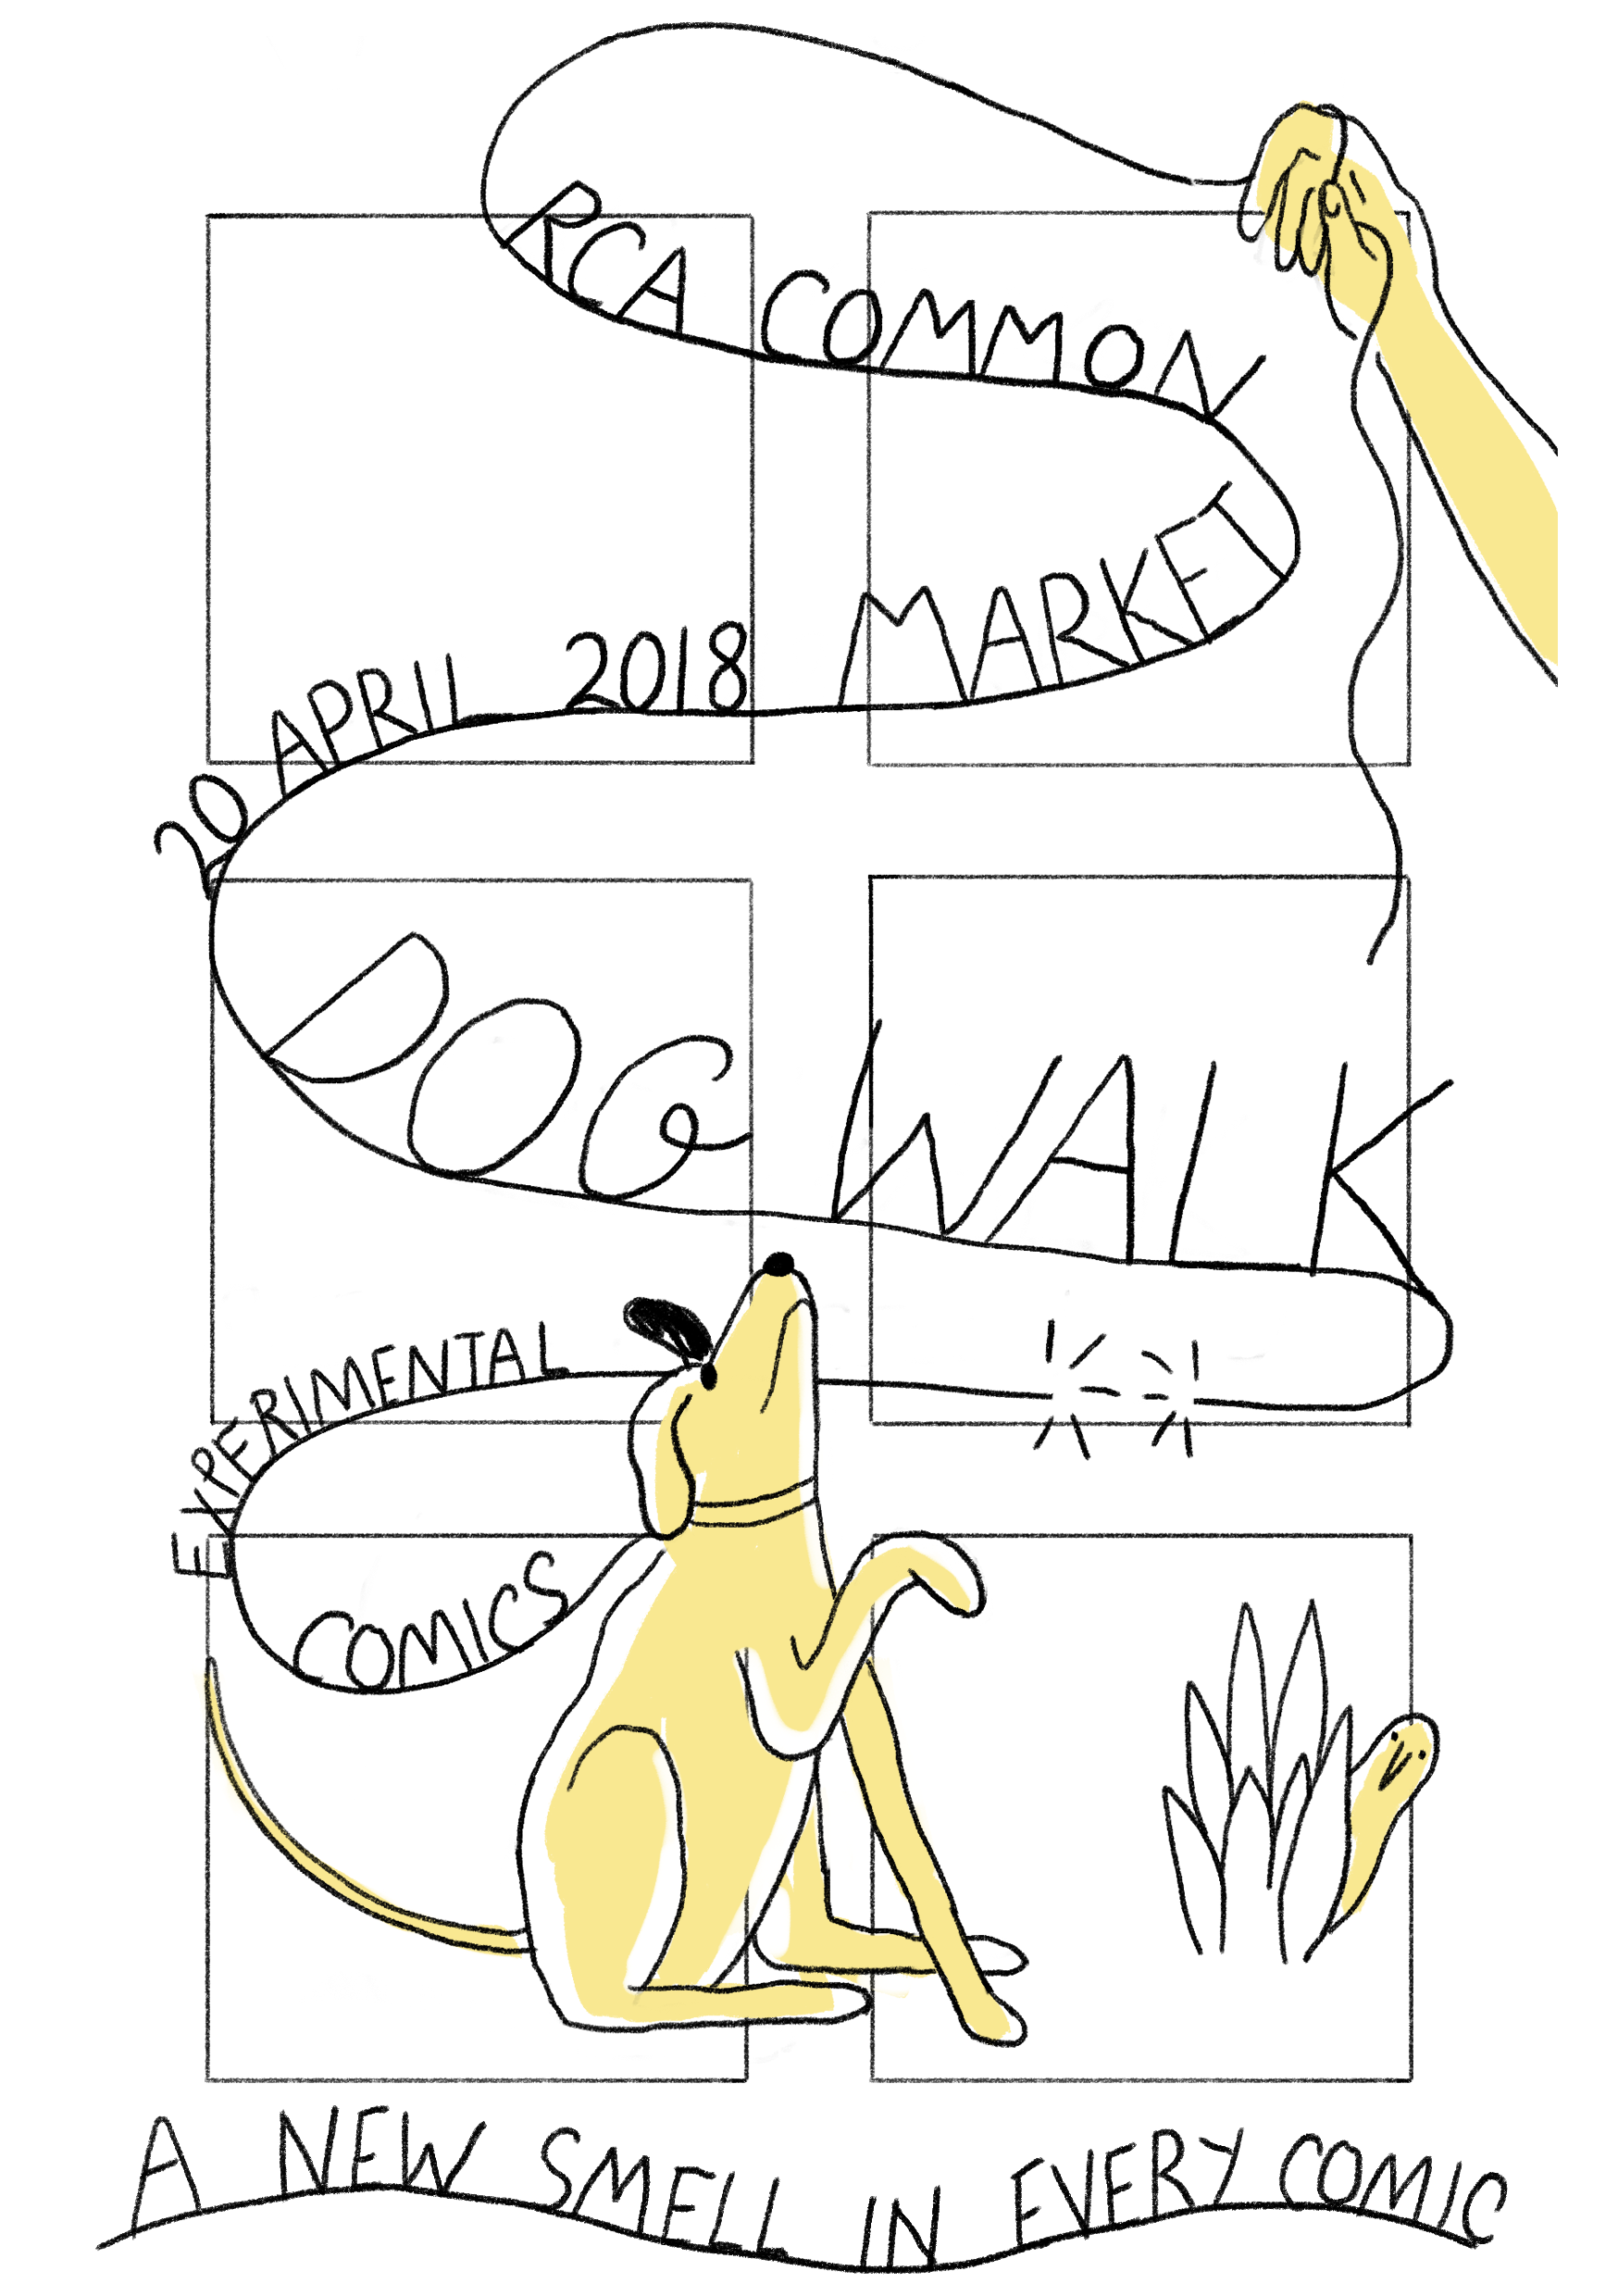 RCA COMMON
MARKET
20 APRIL 2018
DOG WALK
EXPERIMENTAL
COMICS
A NEW SMELL IN EVERY COMIC